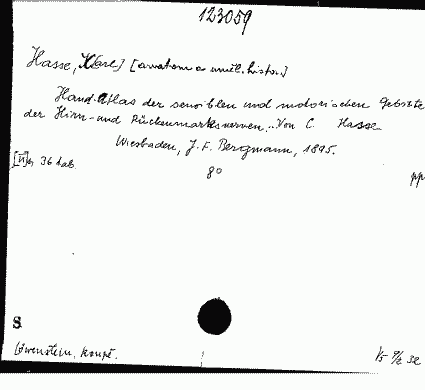 123059
Hasse, K[arl] [anatom a uměl. histor.]
Hand-Atlas der sensiblen und motorischen Gebiete
der Hirn- und Rückenmarksnerven. Von C. Hasse
Wiesbaden, J. F. Bergmann, 1895.
36 tab.
8°
pp
S
Löwenstein, koupě.
32